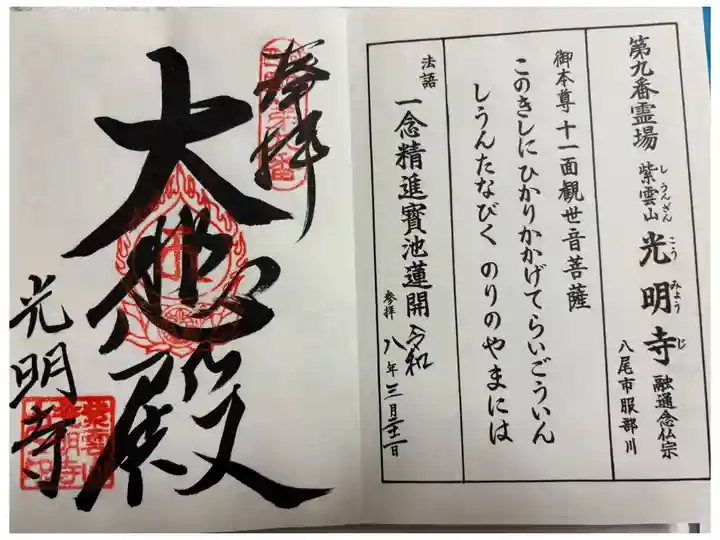 第九番霊場 紫雲山 光明寺 融通念仏宗
しうんざん こうみょうじ
八尾市服部川
御本尊 十一面観世音菩薩
このきしに ひかりかかげてらいごういん
しうんたなびく のりのやまには
法語 一念精進寳池蓮開
参拝 令和八年三月二十一日
奉拝
大悲殿
光明寺